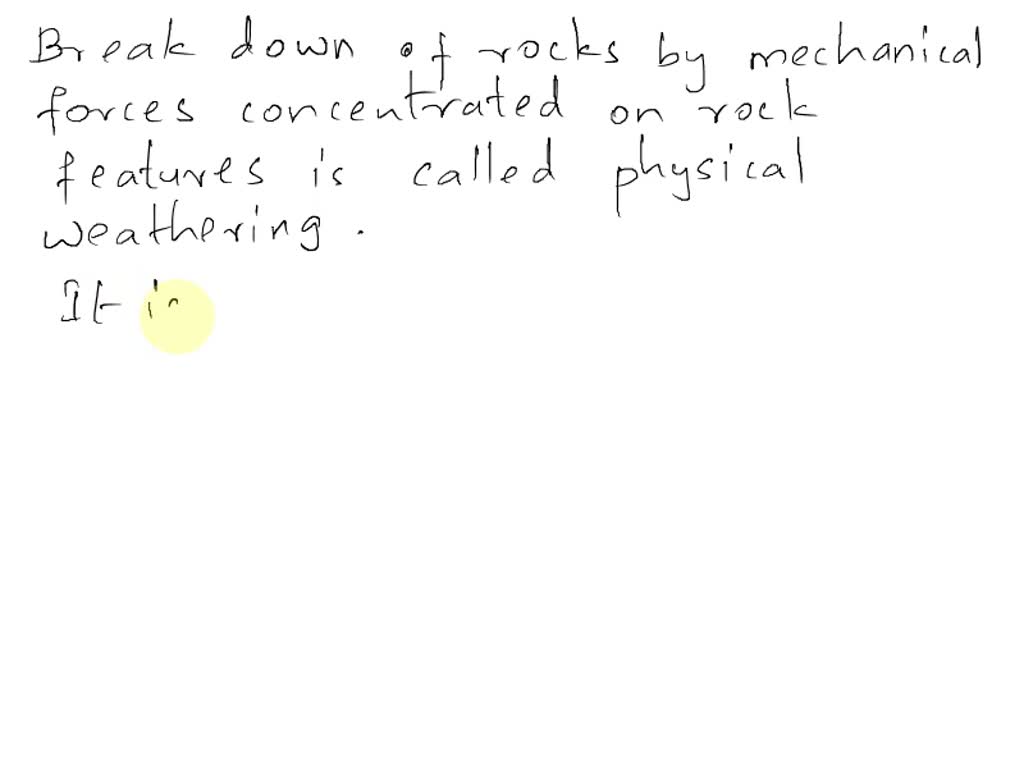 Break down of rocks by mechanical
forces concentrated on rock
features is called physical
weathering.
It